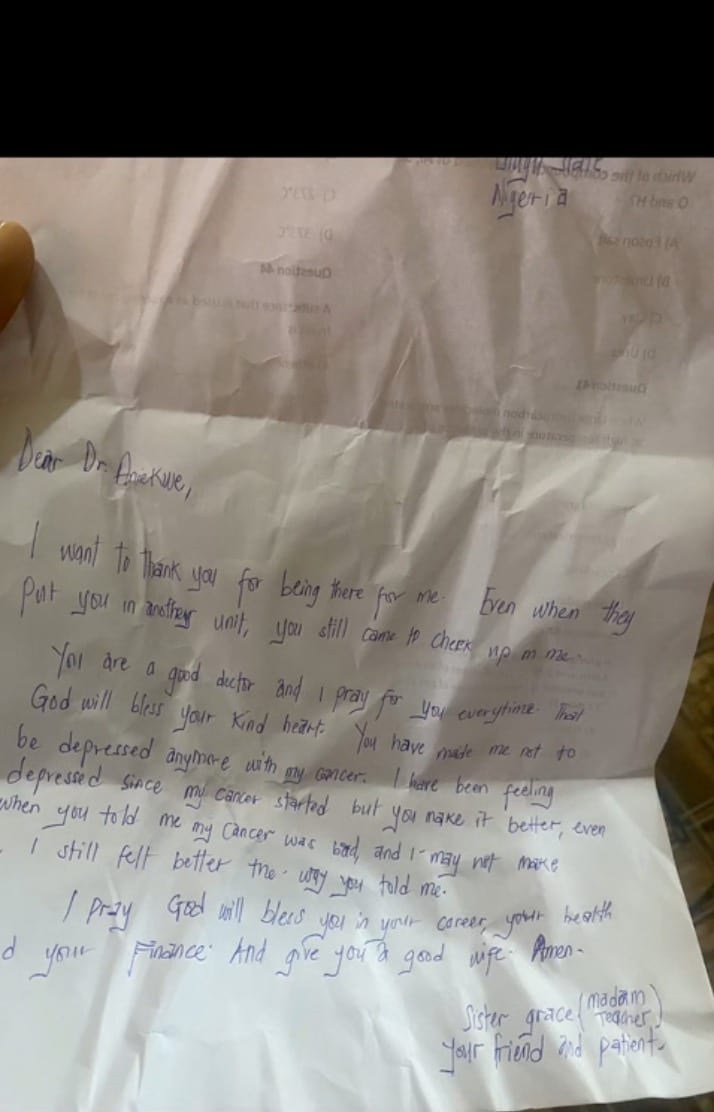 State
Nigeria
Dear Dr. Aniekwe,
I want to thank you for being there for me. Even when they
Put you in another unit, you still came to check up on me.
You are a good doctor and I pray for you everytime. That
God will bless your kind heart. You have made me not to
be depressed anymore with my cancer. I have been feeling
depressed since my cancer started but you make it better, even
when you told me my cancer was bad, and I may not make
I still felt better the way you told me.
I pray God will bless you in your career, your health
d your Finance. And give you a good wife. Amen.
Sister grace (madam
Teacher)
Your friend and patient.